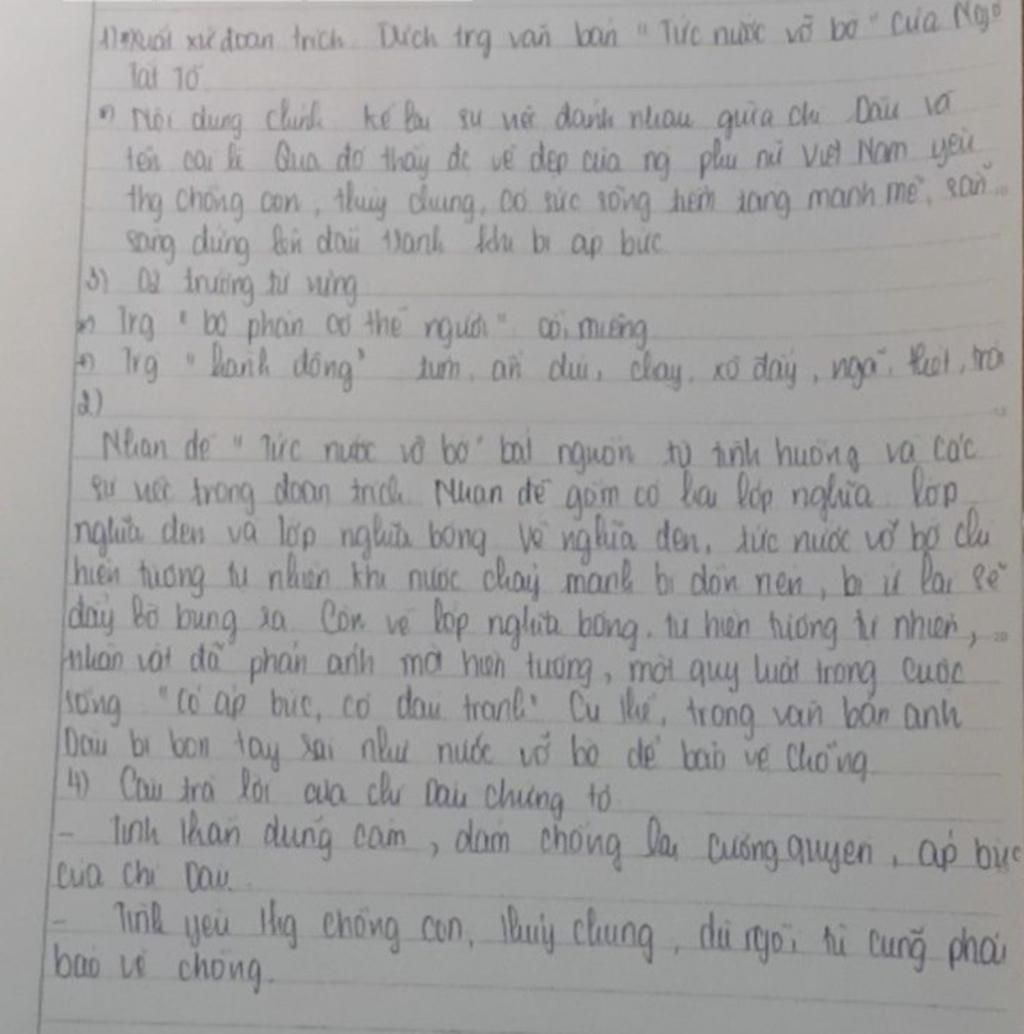 1) Xuất xứ đoạn trích. Trích trg văn bản "Tức nước vỡ bờ" của Ngô
Tất Tố
*) Nội dung chính kể lại sự việc đánh nhau giữa chị Dậu và
tên cai lệ Qua đó thấy đc vẻ đẹp của ng phụ nữ Việt Nam yêu
thg chồng con, thủy chung, có sức sống tiềm tàng mạnh mẽ, sẵn
sàng đứng lên đấu tranh khi bị áp bức
3) trường từ vựng
Trg "bộ phận cơ thể người" cổ, miệng
Trg "hành động" túm, ấn dúi, chạy, xô đẩy, ngã, thét, trói
2)
Nhan đề "Tức nước vỡ bờ" bắt nguồn từ tình huống và các
sự việc trong đoạn trích Nhan đề gồm có hai lớp nghĩa lớp
nghĩa đen và lớp nghĩa bóng Về nghĩa đen, tức nước vỡ bờ chỉ
hiện tượng tự nhiên khi nước chảy mạnh bị dồn nén, bị ứ lại sẽ
đẩy bờ bung ra Còn về lớp nghĩa bóng, từ hiện tượng tự nhiên,
nhân vật đã phản ánh một hiện tượng, một quy luật trong cuộc
sống "Có áp bức, có đấu tranh" Cụ thể, trong văn bản anh
Dậu bị bọn tay sai như nước vỡ bờ để bảo vệ chồng
4) Câu trả lời của chị Dậu chứng tỏ
- Tinh thần dũng cảm, dám chống lại cường quyền, áp bức
của chị Dậu.
- Tình yêu thg chồng con, thủy chung, dù ngồi tù cũng phải
bảo vệ chồng.